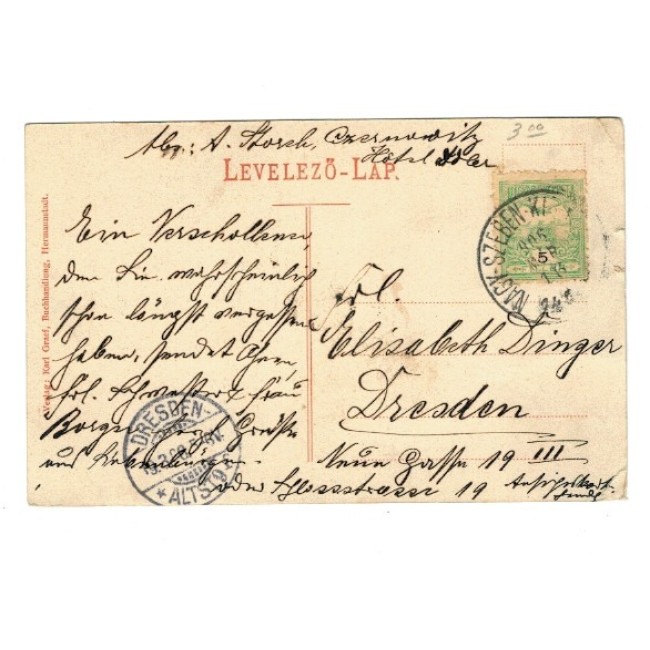 3 00
Abs: A. Storch, Czernowitz
Hôtel Adler
LEVELEZŐ-LAP.
Verlag: Karl Graef, Buchhandlung, Hermannstadt.
NAGY-SZEBEN
5
Ein Verschollener,
den Sie wahrscheinlich
schon längst vergessen
haben, sendet Ihnen,
Frl. Schwester u. Frau
Grüße
aus Siebenbürgen
Frl.
Elisabeth Dinger
Dresden
Neue Gasse 19 III
oder Schlossstrasse 19
DRESDEN-
ALTST. 9